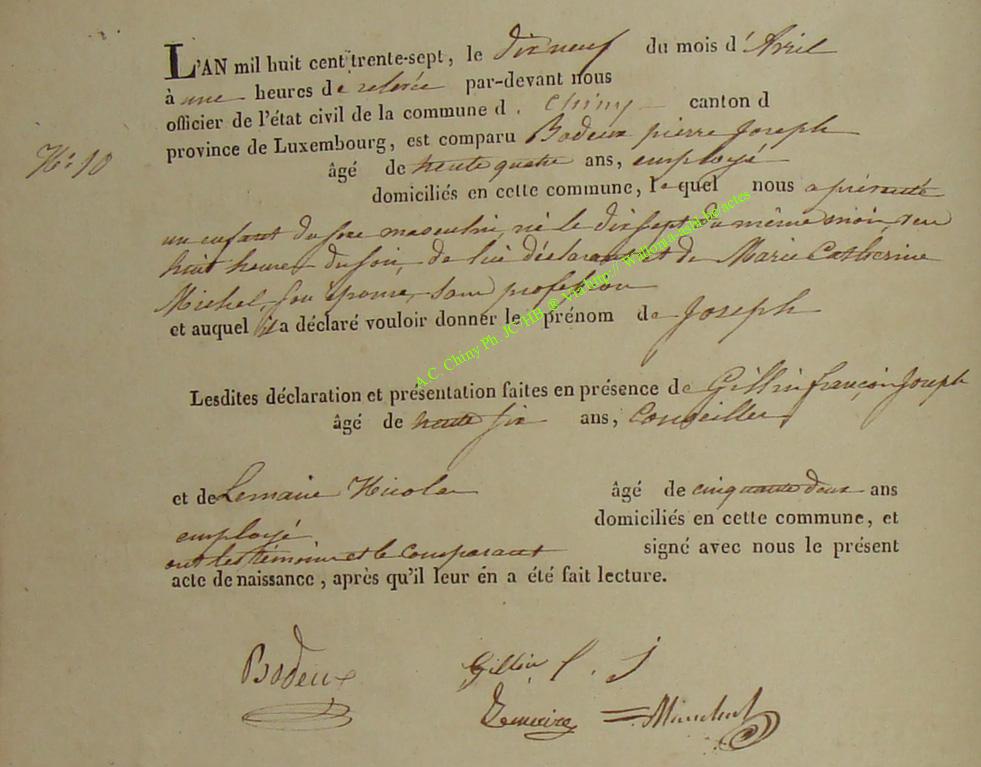 L'AN mil huit cent trente-sept, le dix neuf du mois d'Avril
à une heures de relevée par-devant nous
officier de l'état civil de la commune d. Chiny canton d
province de Luxembourg, est comparu Bodeux pierre Joseph
N.º 10
âgé de trente quatre ans, employé
domiciliés en cette commune, lequel nous a présenté
un enfant du sexe masculin, né le dix sept du même mois, vers
huit heures du soir, de lui déclarant et de Marie Catherine
Michel, son épouse, sans profession
et auquel il a déclaré vouloir donner le prénom de Joseph
A.C. Chiny Ph. JC-HH ® Via http:// Wallonia-asbl.be/actes
Lesdites déclaration et présentation faites en présence de Gillin françois Joseph
âgé de trente six ans, Conseiller,
et de Lemaire Nicolas âgé de cinquante deux ans
employé domiciliés en cette commune, et
ont les témoins et le comparant signé avec nous le présent
acte de naissance, après qu'il leur en a été fait lecture.
Bodeux Gillin f. J
Lemaire